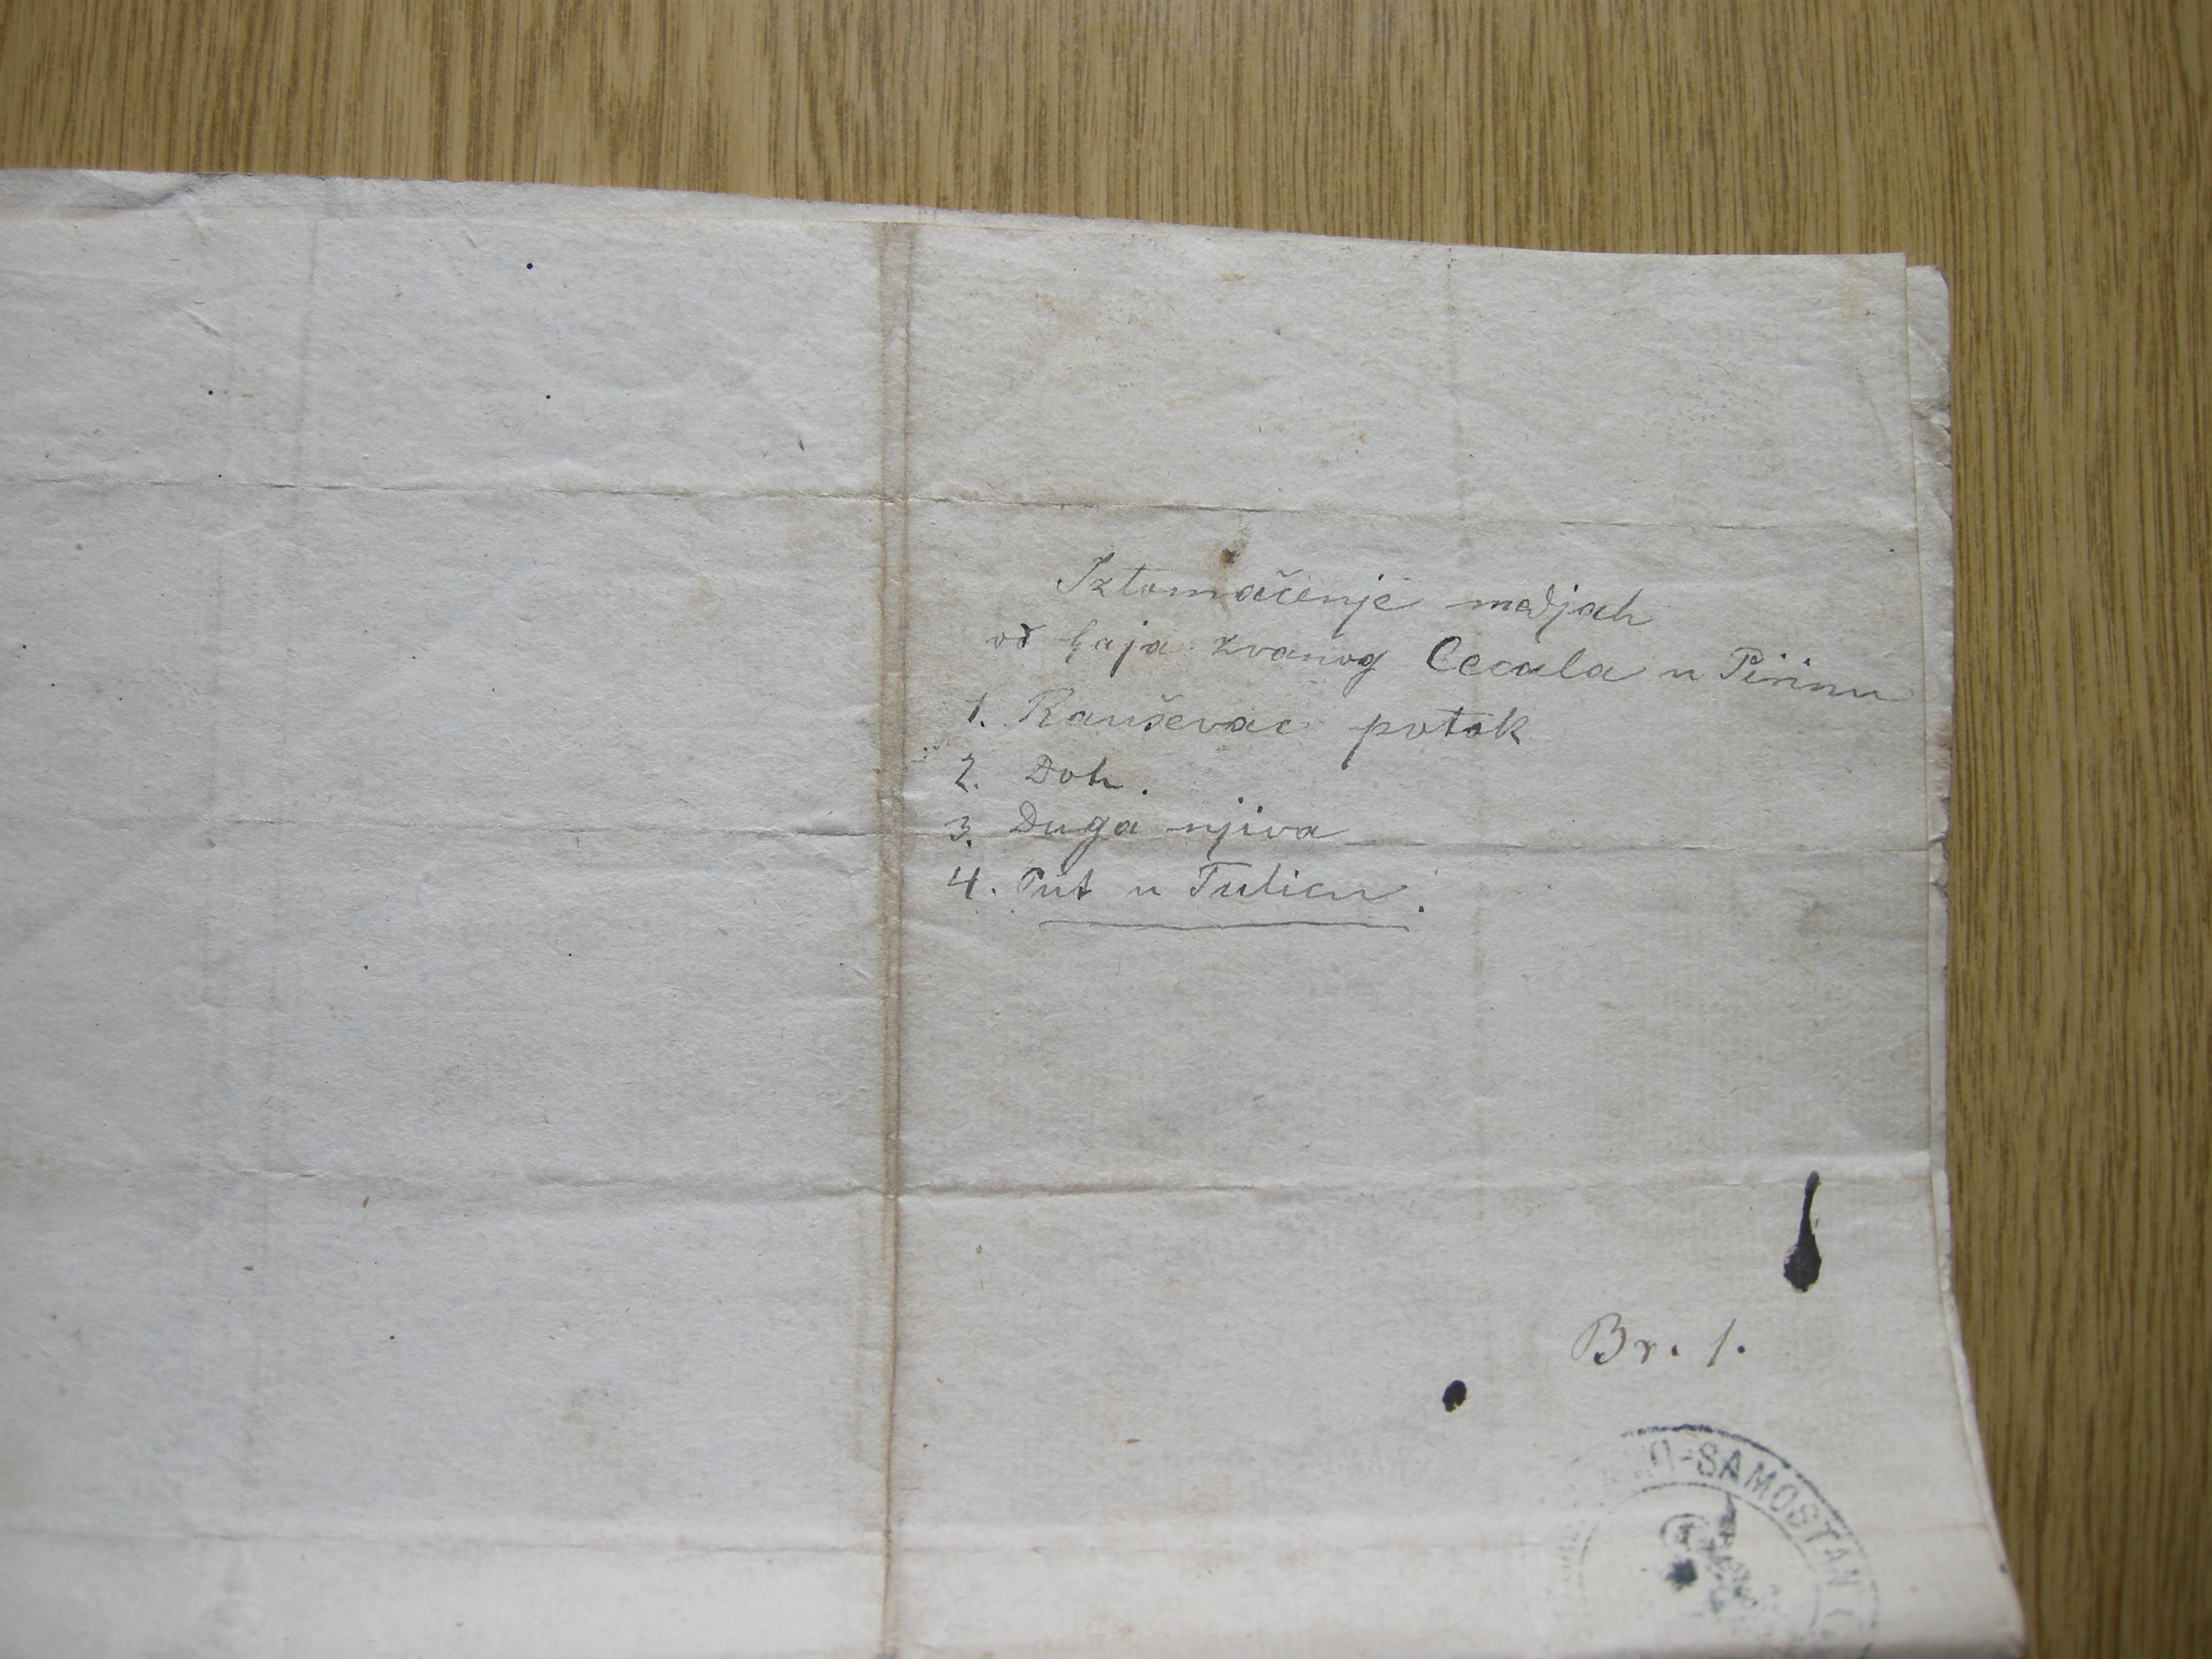 Iztomačenje medjah
od Gaja zvanog Cecala u Pirinu
1. Rauševac potok
2. Doh.
3. Duga njiva
4. Put u Tulicu.
Br. 1.
SAMOSTAN